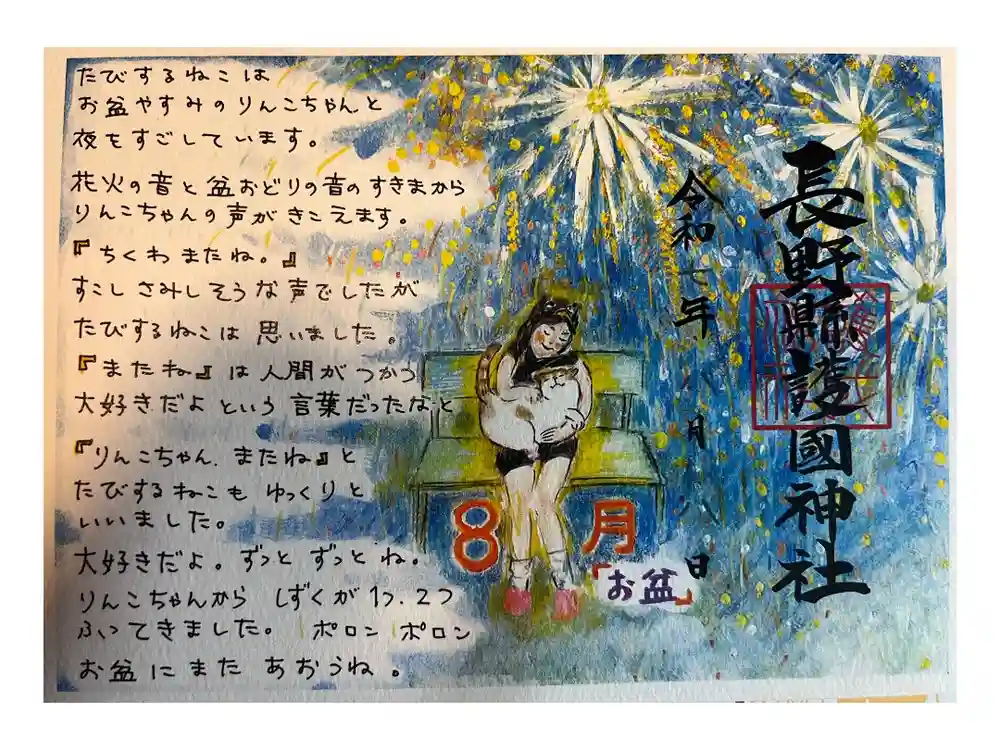 たびするねこは
お盆やすみのりんこちゃんと
夜をすごしています。
花火の音と盆おどりの音のすきまから
りんこちゃんの声がきこえます。
『ちくわ またね。』
すこし さみしそうな声でしたが
たびするねこは 思いました。
『またね』は人間がつかう
大好きだよ という 言葉だったなと
『りんこちゃん. またね』と
たびするねこも ゆっくりと
いいました。
大好きだよ。ずっと ずっと ね。
りんこちゃんから しずくが 1つ. 2つ
ふってきました。 ポロン ポロン
お盆にまた あおうね。
8月
「お盆」
長野縣護國神社
令和七年 八月八日